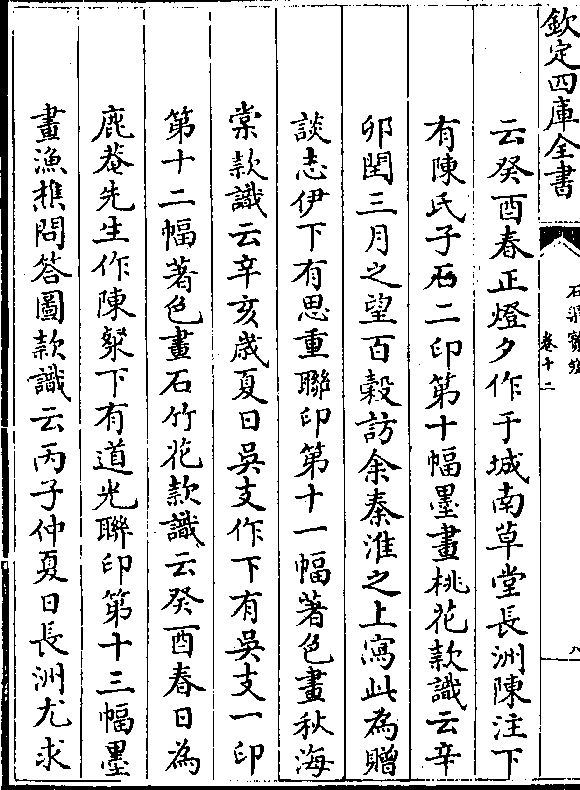 欽定四庫全書
石渠寶笈
卷十二
八
云癸酉春正燈夕作于城南草堂長洲陳注下
有陳氏子石二印第十幅墨畫桃花款識云辛
卯閏三月之望百榖訪余秦淮之上寫此為贈
談志伊下有思重聯印第十一幅著色畫秋海
棠款識云辛亥歲夏日吳支作下有吳支一印
第十二幅著色畫石竹花款識云癸酉春日為
鹿菴先生作陳粲下有道光聯印第十三幅墨
畫漁樵問答圖款識云丙子仲夏日長洲尤求